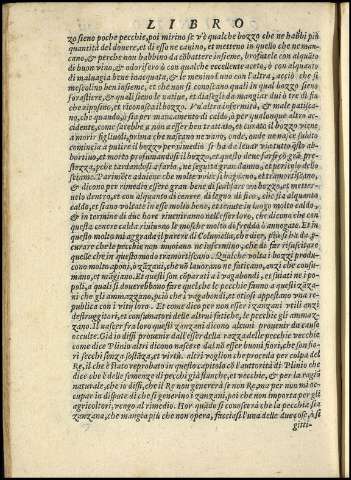 LIBRO
zo sieno poche pecchie, poi mirino se v'è qualche bozzo che ne habbi più
quantità del dovere, et di esso ne cavino, et metteno in quello che ne man-
cano, & perche non habbino da cõbattere insieme, brofatele con alquãto
di buon vino, & odorifero ò con qualche eccellente aceto, ò con alquanto
di malvagia bene inacquata, & le mesino l'uno con l'altra, acciò che si
mescolino ben insieme, et che non si conoscano quali in qual bozzo sieno
forastiere, & quali sieno le native, et diasigli da mangiar dui ò tre dì fin
che si posino, et riconoscã il bozzo. Un'altra infermità, & male patisca-
no, che quando, ò sia per mancamento di caldo, ò per qualunque altro ac-
cidente, come sarebbe a non esser ben trattato, et curato il bozzo viene
a morir figliuoli, prima che nascano ne i nove, onde, onde ne nasce subito
comincia a putire il bozzo per rimedio si ha da levar via tutto q̃sto ab-
bortivo, et morto profumandosi il bozzo, et questo deve farsi cõ grã pre-
stezza, poi che tardandosi a farlo, ne seguita gran danno, et pericolo del lo
sciame. Parimẽte adviene che molte volte si bagnino, et tramortiscano,
& dicono per rimedio essere gran bene di scaldare un bozzo, et metter-
velo dentro, et con alquanto di cenere di legno di fico, che sia alquanto
calda, et siano voltate in esse molto bene, et tenute in luogo molto caldo,
& in termine di due hore riveniranno nell'esser loro, che dicono che con
questa cenere calda rivivono le mosche molto di freddo ò annegate. Et in
questo molto mi aggrada il parere di Columella, che dice, più si ha da pro-
curare che le pecchie non muoiano ne infermino, che di far risuscitare
quelle che in questo modo tramortiscano. Qualche volta i bozzi produ-
cono molto aponi, ò zãzani, che nõ lavorano ne faticano, anzi che consu-
mano, et mãgiano. Et questi son cõparati a i vagabondi, et sviati ne i po-
poli, a quali si doverebbono fare quelle che le pecchie fanno a questi zãza-
ni che gli ammazzano, più che à i vagabondi, et otiosi appestano una re-
publica con i vitij loro. Et come dico per non esser i zanzani utili anzi
destruggitori, et consumatori delle altrui fatiche, le pecchie gli ammaz-
zano. Il nascer fra loro questi zanzani dicono alcuni provenir da cause
occulte. Già io dissi provenir dall'esser della razza delle pecchie vecchie
come dice Plinio altri dicono nascere dal esser buoni fiori, che son fio-
ri secchi senza sostãza, et virtù. altri voglion che proceda per colpa del
Re, il che è stato reprobato in questo capitolo cõ l'autorità di Plinio che
dice che è delle semenze di pecchi già stanche, et vecchie, & per la ragiõ
naturale, che io dissi, che il Re non genererà se non Re, ma per non mi oc-
cupar in dispute di che si generino i zanzani, poi che non importa per gli
agricoltori, vengo al rimedio. Hor quãdo si conoscerà che la pecchia sia
zanzana, che mangia più che non opera, facciasi l'una delle due cose, ò si
gitti-